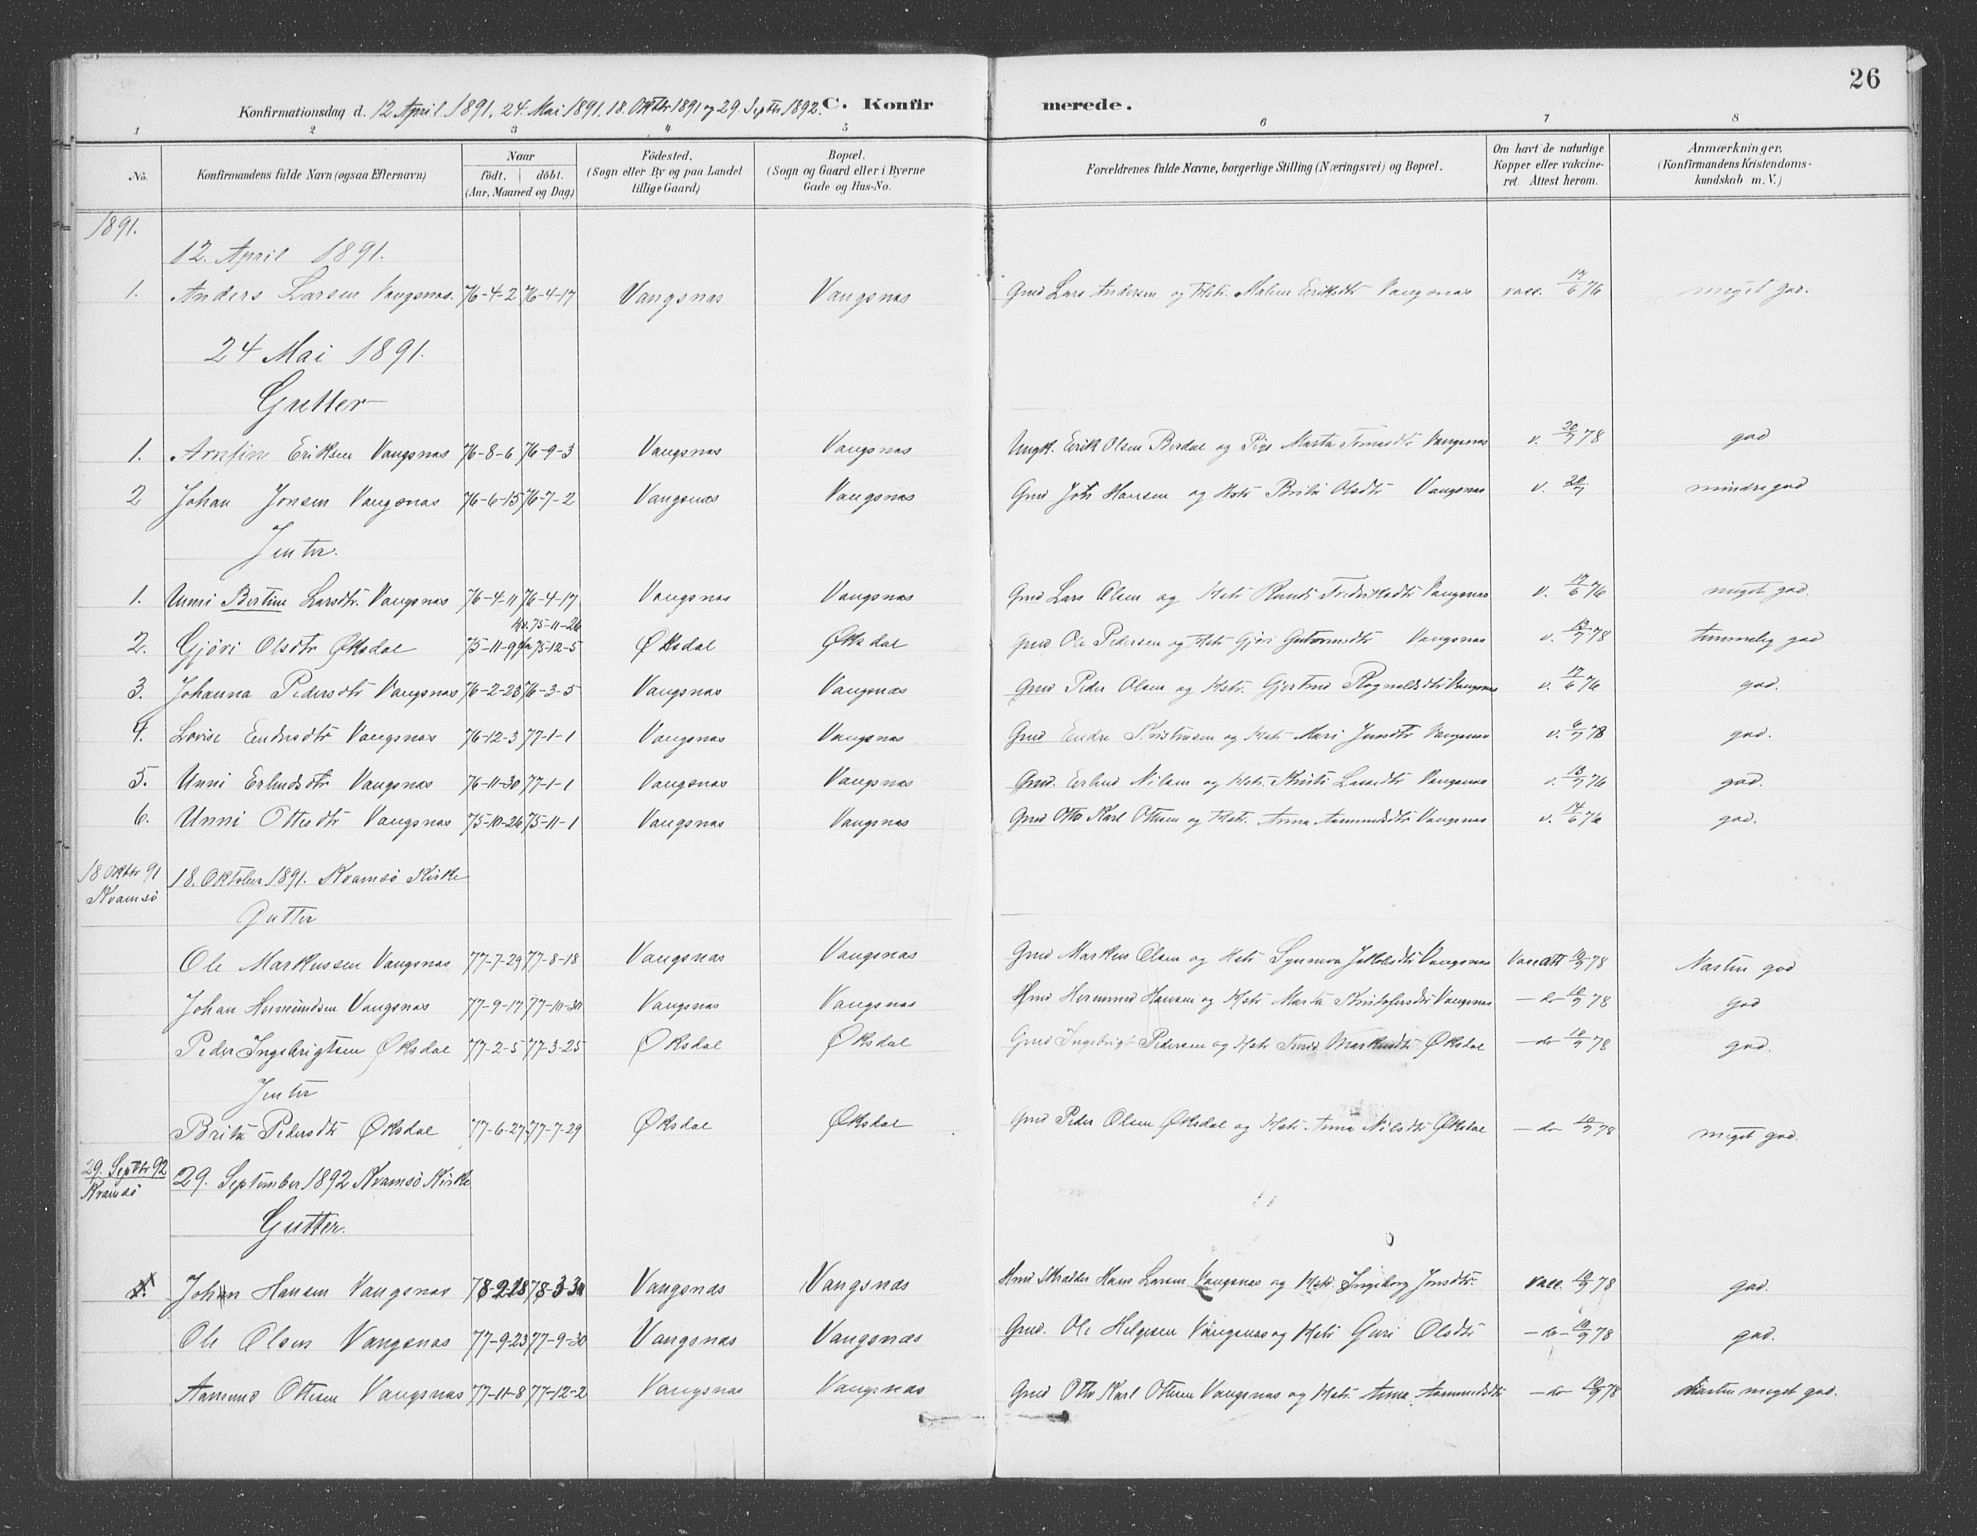 26
Konfirmationsdag d. 12 April 1891, 24 Mai 1891, 18. Oktbr 1891 og 29. Septbr 1892. C. Konfir merede.
1 2 3 4 5 6 7 8
No. Konfirmandens fulde Navn (ogsaa Efternavn) Naar födt. döbt. (Aar, Maaned og Dag) Födested. (Sogn eller By og paa Landet tillige Gaard) Bopæl. (Sogn og Gaard eller i Byerne Gade og Hus-No. Forældrenes fulde Navne, borgerlige Stilling (Næringsvei) og Bopæl. Om havt de naturlige Kopper eller vaccineret. Attest herom. Anmærkninger. (Konfirmandens Kristendomskundskab m. V.)
1891.
12. April 1891.
1. Anders Larsen Vangsnas. 76-4-2 76-4-17 Vangsnas Vangsnas Gmd Lars Andersen og Hstr. Malene Eriksdtr Vangsnas vacc. 17/6 76 meget god.
24 Mai 1891.
Gutter
1. Arnfin Eriksen Vangsnas 76-8-6 76-9-3 Vangsnas Vangsnas Ungk. Erik Olsen Berdal og Pige Marta Vangsnas v. 20/7 78 god
2 Johan Jonsen Vangsnas 76-6-15 76-7-2 Vangsnas Vangsnas Gmd Joh Hansen og Hstr Brita Olsdtr Vangsnas v. 20/7 mindre god
Jenter.
1. Unni Bertine Larsdtr. Vangsnas 76-4-11 76-4-17 Vangsnas Vangsnas Gmd Lars Olsen og Hstr Randi Fredriksdtr Vangsnas v. 17/6 76 meget god.
2. Gjöri Olsdtr Øksdal 75-11-9 75-11-26 75-12-5 Øksdal Øksdal Gmd Ole Pedersen og Hstr Gjöri Guttormsdtr Vangsnas v. 78 temmelig god
3. Johanna Pedersdtr Vangsnas 76-2-23 76-3-5 Vangsnas Vangsnas Gmd Peder Olsen og Hstr. Gjertrud Rognaldsdtr Vangsnas v. 17/6 76 god.
4. Lovise Endresdtr Vangsnas 76-12-3 77-1-1 Vangsnas Vangsnas Gmd Endre Kristensen og Hstr Mari Jonsdtr Vangsnas v. 6/7 78 god.
5. Unni Erlendsdtr Vangsnas 76-11-30 77-1-1 Vangsnas Vangsnas Gmd. Erlend Nilsen og Hstr. Kristi Larsdtr Vangsnas v. 76 god.
6. Unni Ottesdtr Vangsnas 75-10-26 75-11-1 Vangsnas Vangsnas Gmd Otto Karl Ottesen og Hstr. Anna Aamundsdtr Vangsnas v. 17/6 76 god.
18 Oktbr 91 Kvamsö 18. Oktober 1891. Kvamsö Kirke
Gutter
Ole Markussen Vangsnas 77-7-29 77-8-18 Vangsnas Vangsnas Gmd Markus Olsen og Hstr Synneva Jakobsdtr Vangsnas Vacc att 10/9 78 Næsten god
Johan Hermundsen Vangsnas 77-9-17 77-10-30 Vangsnas Vangsnas Hmd Hermund Hansen og Hstr Marta Kristofersdtr Vangsnas — do 10/9 78 god
Peder Ingebrigtsen Øksdal 77-2-5 77-3-25 Øksdal Øksdal Gmd Ingebrigt Pedersen og Hstr Markusdtr Øksdal — do 78 god.
Jenter
Brita Pedersdtr Øksdal 77-6-27 77-7-29 Øksdal Øksdal Gmd Peder Olsen Øksdal og Hstr. Anna Nilsdtr Øksdal — do 10/9 78 meget god.
29. Septbr 92 Kvamsö 29. September 1892 Kvamsö Kirke
Gutter.
Johan Hansen Vangsnas 78-2-18 78-3-31 Vangsnas Vangsnas Hmd Skrædder Hans Larsen Vangsnas og Hstr Ingeborg Jonsdtr. vacc. 10/9 78 god.
Ole Olsen Vangsnas 77-9-23 77-9-30 Vangsnas Vangsnas Gmd. Ole Helgesen Vangsnas og Hstr Guri Olsdtr — do — 10/9 78 god.
Aamund Ottesen Vangsnas 77-11-8 77-12-2 Vangsnas Vangsnas Gmd Otto Karl Ottesen Vangsnas og Hstr Anna Aamundsdtr — do 10/9 78 Næsten meget god.